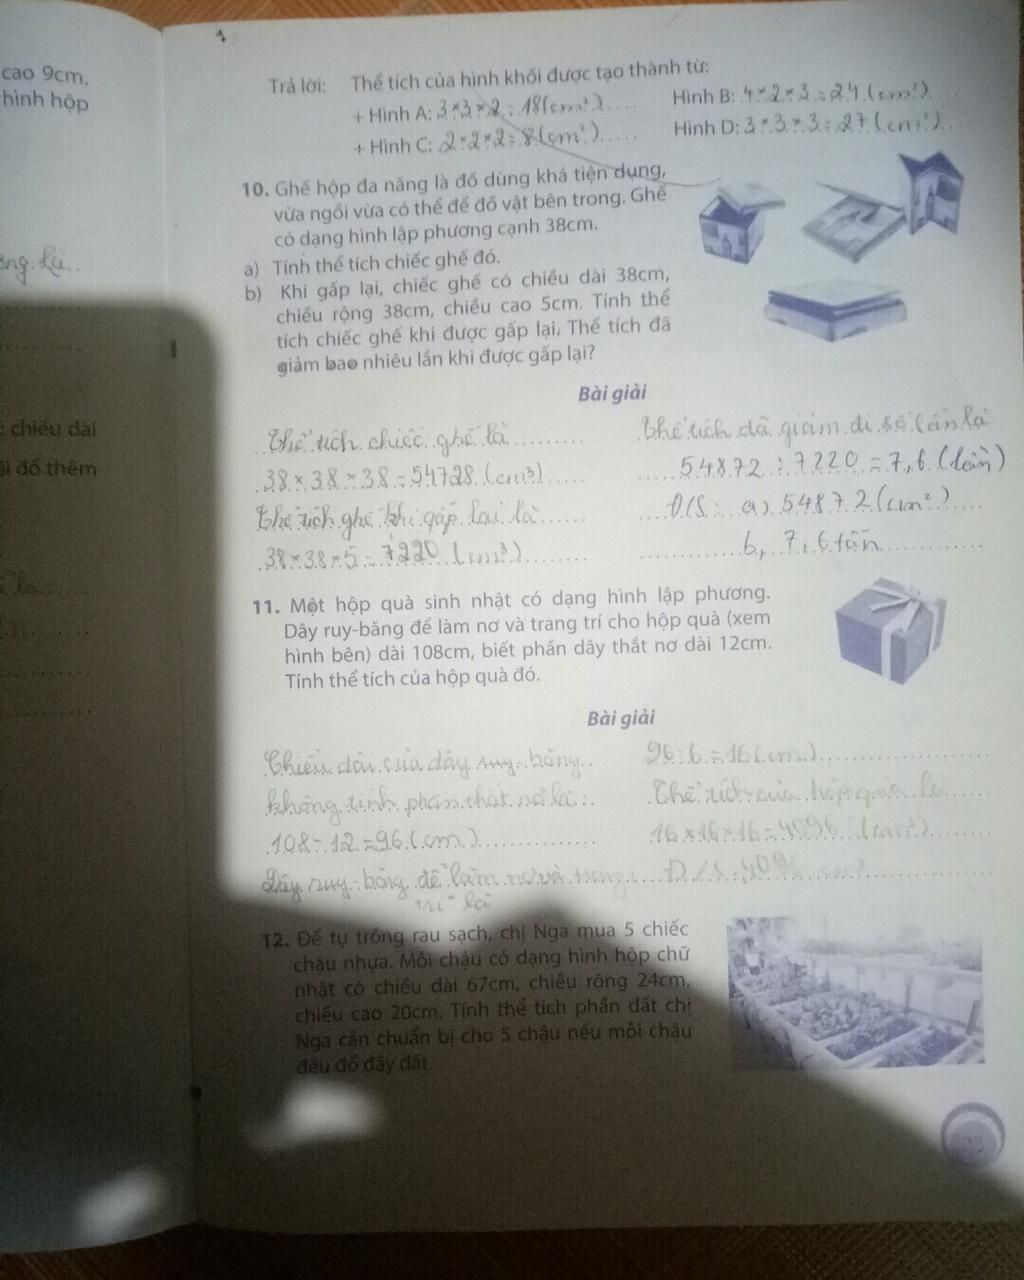 cao 9cm.
hình hộp
: chiều dài
ại đổ thêm
Trả lời: Thể tích của hình khối được tạo thành từ:
+ Hình A: 3 × 3 × 2 = 18 (cm³) Hình B: 4 × 2 × 3 = 24 (cm³)
+ Hình C: 2 × 2 × 2 = 8 (cm³) Hình D: 3 × 3 × 3 = 27 (cm³)
10. Ghế hộp đa năng là đồ dùng khá tiện dụng,
vừa ngồi vừa có thể để đồ vật bên trong. Ghế
có dạng hình lập phương cạnh 38cm.
a) Tính thể tích chiếc ghế đó.
b) Khi gấp lại, chiếc ghế có chiều dài 38cm,
chiều rộng 38cm, chiều cao 5cm. Tính thể
tích chiếc ghế khi được gấp lại. Thể tích đã
giảm bao nhiêu lần khi được gấp lại?
Bài giải
Thể tích chiếc ghế là
38 × 38 × 38 = 54728 (cm³)
Thể tích ghế khi gấp lại là
38 × 38 × 5 = 7220 (cm³)
Thể tích đã giảm đi số lần là
54872 : 7220 = 7,6 (lần)
Đ/S: a) 54872 (cm³)
b, 7,6 lần
11. Một hộp quà sinh nhật có dạng hình lập phương.
Dây ruy-băng để làm nơ và trang trí cho hộp quà (xem
hình bên) dài 108cm, biết phần dây thắt nơ dài 12cm.
Tính thể tích của hộp quà đó.
Bài giải
Chiều dài của dây ruy-băng
không tính phần thắt nơ là:
108 - 12 = 96 (cm)
Dây ruy-băng để làm nơ và trang
trí là
96 : 6 = 16 (cm)
Thể tích của hộp quà là
16 × 16 × 16 = 4096 (cm³)
Đ/S: 4096 cm³
12. Để tự trồng rau sạch, chị Nga mua 5 chiếc
chậu nhựa. Mỗi chậu có dạng hình hộp chữ
nhật có chiều dài 67cm, chiều rộng 24cm,
chiều cao 20cm. Tính thể tích phần đất chị
Nga cần chuẩn bị cho 5 chậu nếu mỗi chậu
đều đổ đầy đất.